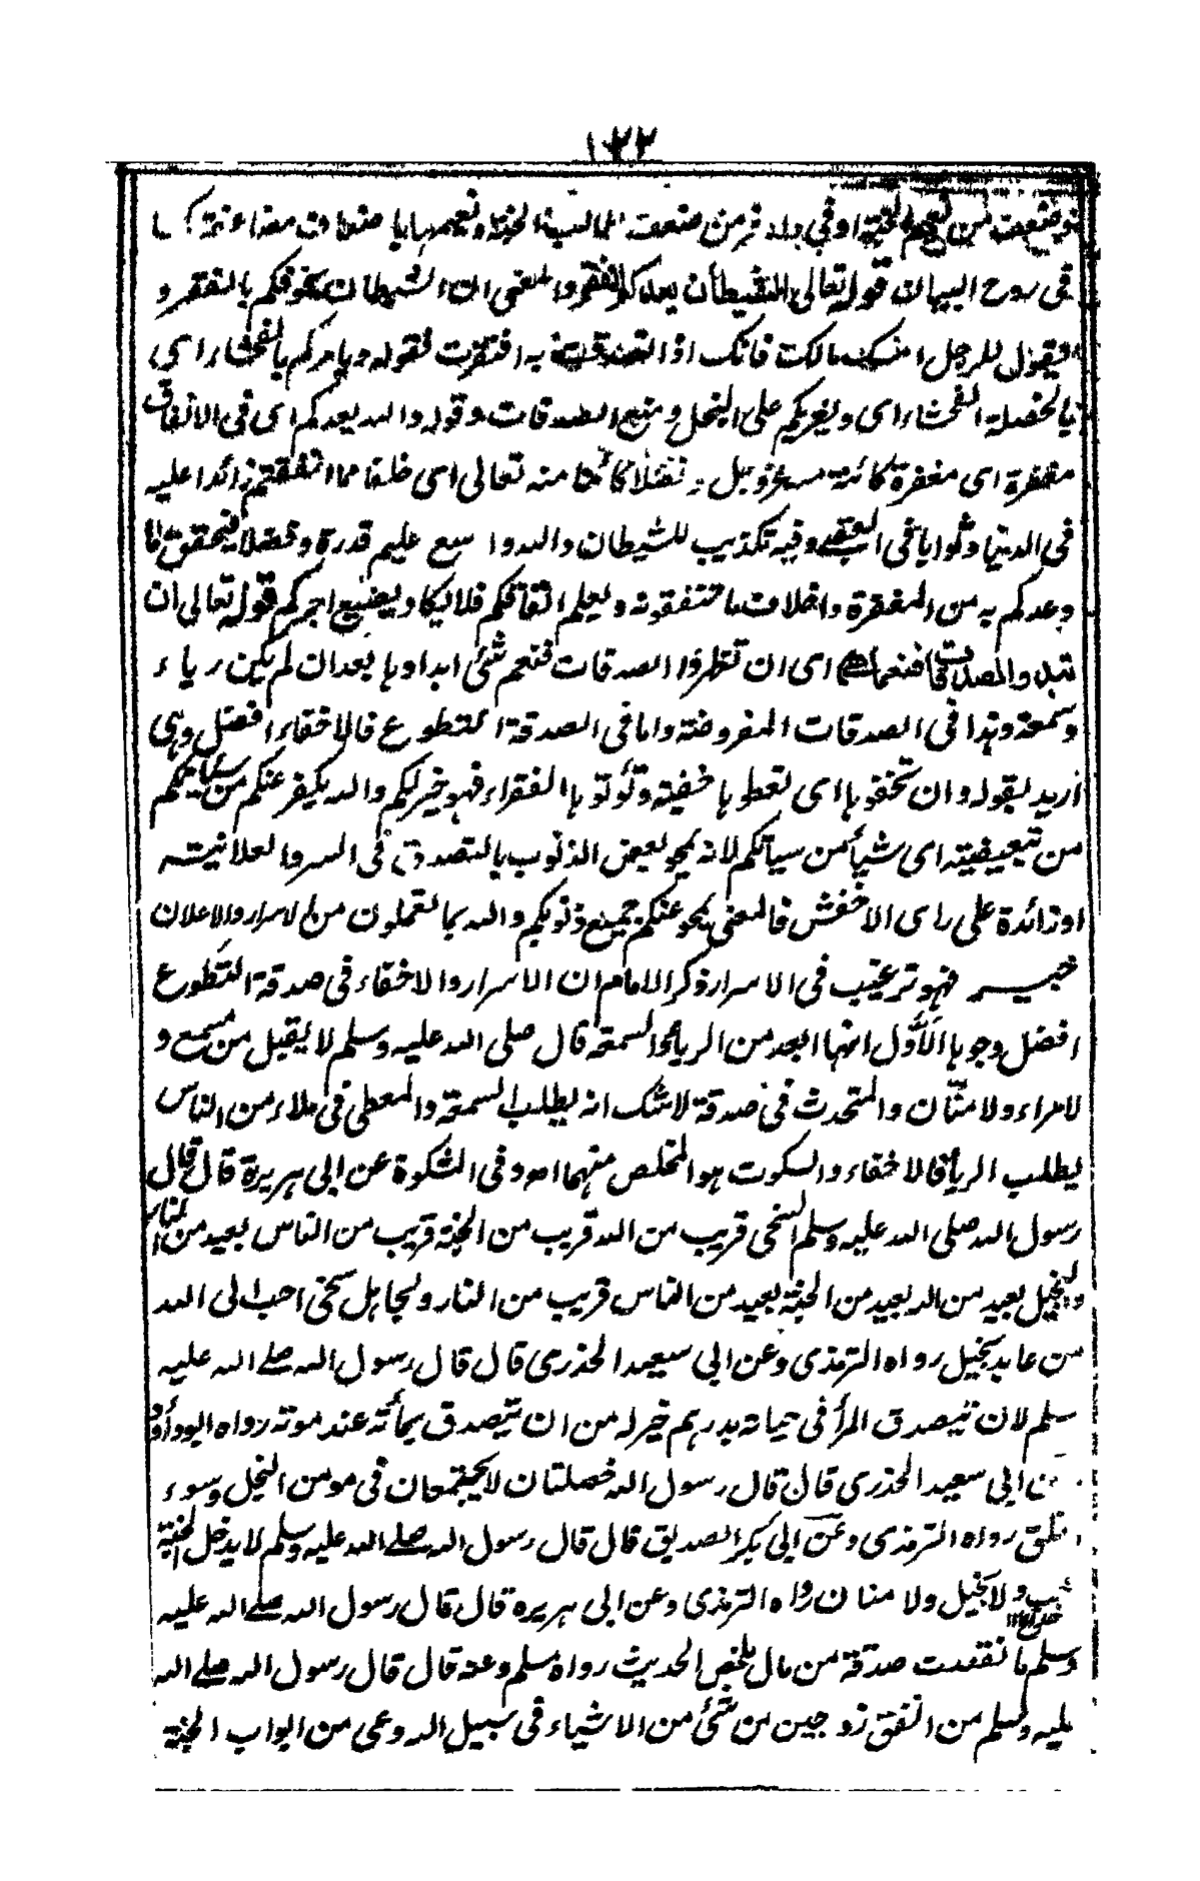 ١٢٢
في روح البيان قوله تعالى الشيطان يعدكم الفقر والمعنى ان الشيطان يخوفكم بالفقر و
فيقول للرجل امسك مالك فانك اذا تصدقت به افتقرت قوله ويامركم بالفحشاء اى
بالخصلة الفحشاء اى ويغريكم على البخل ومنع الصدقات وقوله والله يعدكم اى فى الانفاق
مغفرة اى مغفرة كائنة عزوجل وفضلا كائنا منه تعالى اى خلفا مما انفقتم زائدا عليه
فى الدنيا وثوابا فى العقبى وفيه تكذيب للشيطان والله واسع عليم قدرة وفضلا فيحقق ما
وعدكم به من المغفرة واخلاف ما تنفقونه ويعلم انفاقكم فلا يكاد يضيع اجركم قوله تعالى ان
تبدوا الصدقات فنعما هى اى ان تظهروا الصدقات فنعم شئ ابداوها بعد ان لم يكن رياء
وسمعة وهذا فى الصدقات المفروضة واما فى الصدقة التطوع فالاخفاء افضل وهى
اريد بقوله وان تخفوها اى تعطوها خفية وتؤتوها الفقراء فهو خير لكم والله يكفر عنكم من سياتكم
من تبعيضية اى شيأ من سيأتكم لانه يمحو بعض الذنوب بالتصدق فى السر والعلانية
او زائدة على راى الاخفش فالمعنى يمحو عنكم جميع ذنوبكم والله بما تعملون من الاسرار والاعلان
خبير فهو ترغيب فى الاسرار ذكر الامام ان الاسرار والاخفاء فى صدقة التطوع
افضل وجوها الاول انها ابعد من الرياء والسمعة قال صلى الله عليه وسلم لا يقبل من مسمع و
لا مراء ولا منّان والمتحدث فى صدقة لاشك انه يطلب السمعة والمعطى فى ملاء من الناس
يطلب الرياء فالاخفاء والسكوت هو المخلص منهما اه وفى المشكوة عن ابى هريرة قال قال
رسول الله صلى الله عليه وسلم السخى قريب من الله قريب من الجنة قريب من الناس بعيد من النار
والبخيل بعيد من الله بعيد من الجنة بعيد من الناس قريب من النار ولجاهل سخى احب الى الله
من عابد بخيل رواه الترمذى وعن ابى سعيد الخدرى قال قال رسول الله صلے الله عليه
سلم لان تيصدق المرأ فى حياته بدرهم خير له من ان تيصدق بمأئة عند موته رواه ابوداود
عن ابى سعيد الخدرى قال قال رسول الله خصلتان لا يجتمعان فى مومن البخل وسوء
الخلق رواه الترمذى وعن ابى بكر الصديق قال قال رسول الله صلے الله عليه وسلم لا يدخل الجنة
خب ولا بخيل ولا منان رواه الترمذى وعن ابى هريره قال قال رسول الله صلے الله عليه
وسلم ما نقصت صدقة من مال بلخص الحديث رواه مسلم وعنه قال قال رسول الله صلے الله
عليه وسلم من انفق زوجين من شئ من الاشياء فى سبيل الله دعى من ابواب الجنة